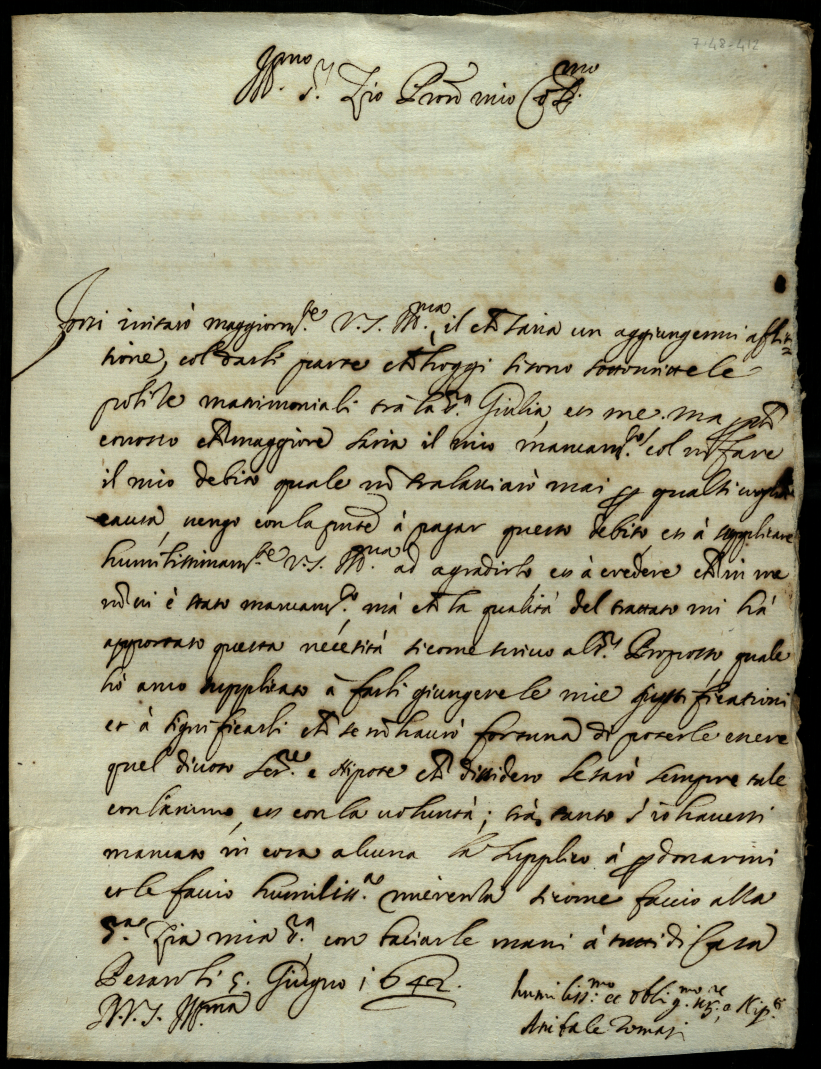 7-48-412
Ill.mo S.r Zio Pron mio Col.mo
Forsi irritarò maggiorm.te V.S. Ill.ma, il che saria un aggiungermi aflit=
tione, col darli parte che hoggi si sono sottoscritte le
polite matrimoniali trà la S.ra Giulia, et me. ma perche
conosco che maggiore saria il mio mancam.to col nõ fare
il mio debito quale nõ tralasciarò mai per qualsivoglia
causa, vengo con la pnte à pagar questo debito, et à supplicare
humilissimam.te V.S. Ill.ma ad agradirlo, et à credere che in me
nõ vi è stato mancam.to mà che la qualità del trattato mi hà
apportato questa necesità sicome scrivo al S.r Proposto, quale
hò anco supplicato à farli giungere le mie giustificationi
et à significarli che se nõ haurò fortuna di poterle essere
quel divoto Ser.re e Nipote che dissidero le sarò sempre tale
con l'animo, et con la voluntà; trà tanto s'io havessi
mancato in cosa alcuna la supplico à perdonarmi
et le faccio humiliss.a riverenza sicome faccio alla
S.ra Zia mia S.ra con baciarle mani à tutti di Casa
Pesaro li 5. Giugno 1642.
D.V.S. Ill.ma
humiliss.mo et oblig.mo se.re e Nip.e
Anibale Tomasi